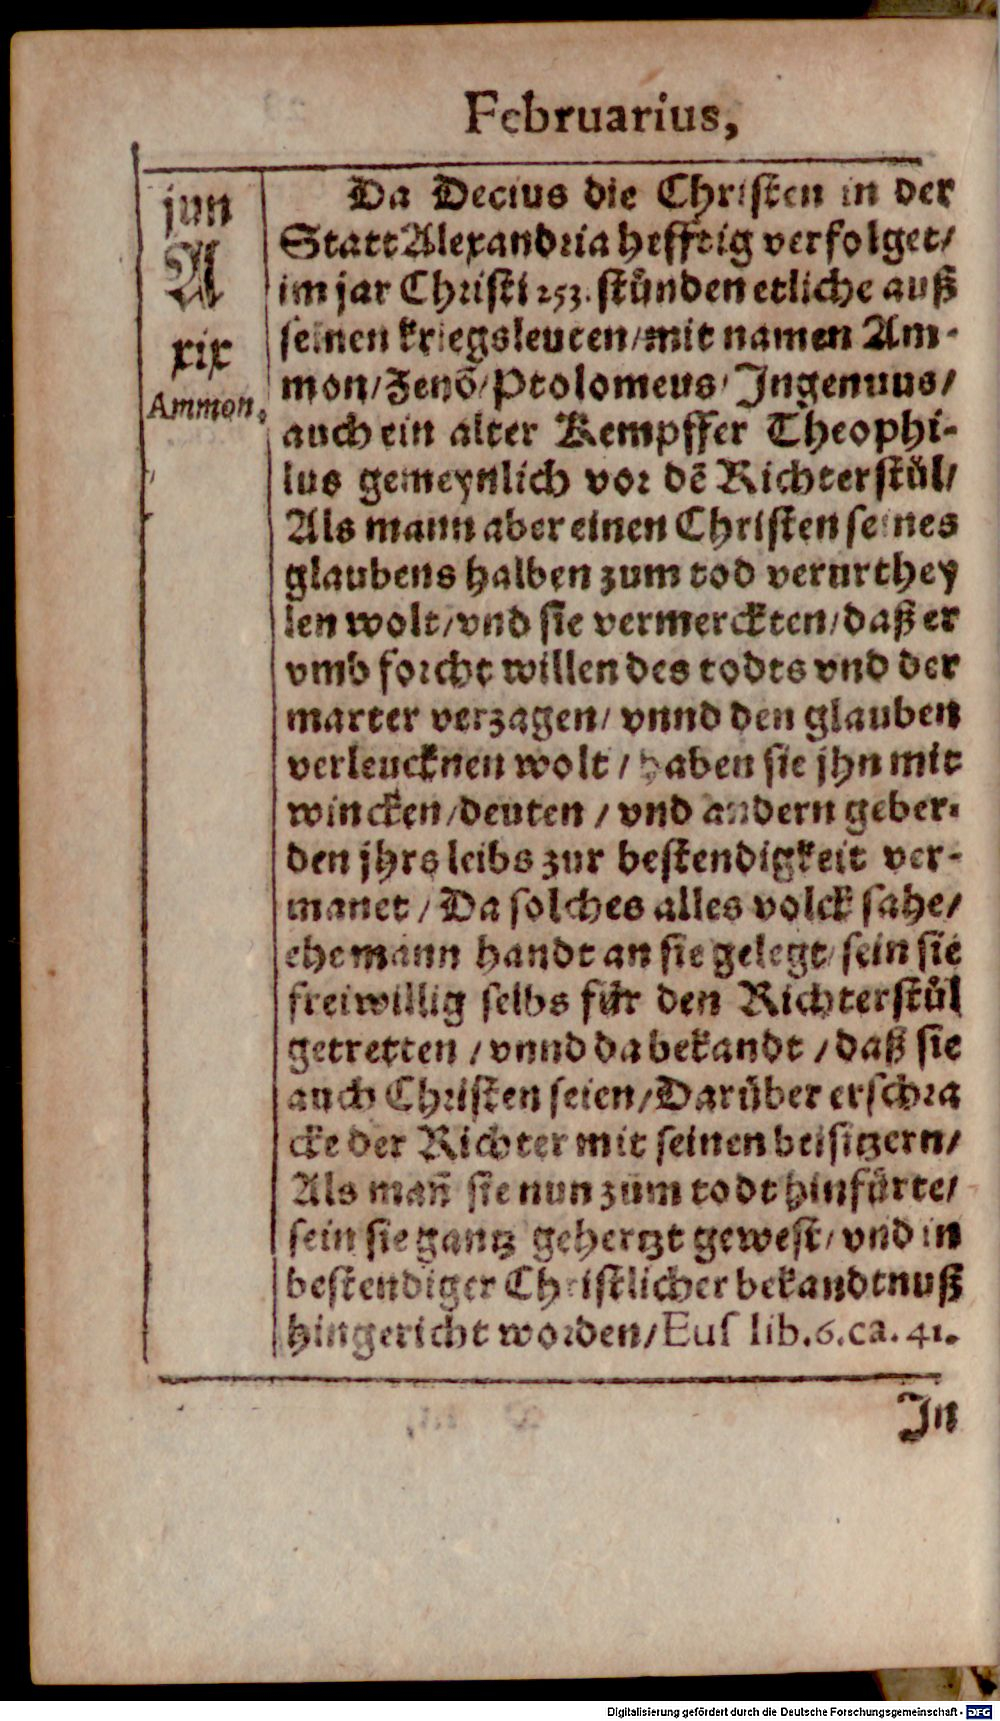 Februarius,
jvn
A
xix
Ammon.
Da Decius die Christen in der
Statt Alexandria hefftig verfolget/
im jar Christi 253. stůnden etliche auß
seinen kriegsleuten/mit namen Am-
mon/Zenō/Ptolomeus/Ingenuus/
auch ein alter Kempffer Theophi-
lus gemeynlich vor dē Richterstůl/
Als mann aber einen Christen seines
glaubens halben zum tod verurthey
len wolt/vnd sie vermerckten/daß er
vmb forcht willen des todts vnd der
marter verzagen/ vnnd den glauben
verleucknen wolt / haben sie jhn mit
wincken/deuten / vnd andern geber-
den jhrs leibs zur bestendigkeit ver-
manet / Da solches alles volck sahe/
ehe mann handt an sie gelegt/sein sie
freiwillig selbs für den Richterstůl
getretten / vnnd da bekandt / daß sie
auch Christen seien/Darüber erschra
cke der Richter mit seinen beisitzern/
Als mañ sie nun zum todt hinfürte/
sein sie gantz gehertzt gewest/ vnd in
bestendiger Christlicher bekandtnuß
hingericht worden/Eus lib.6.ca.41.
In
Digitalisierung gefördert durch die Deutsche Forschungsgemeinschaft - DFG